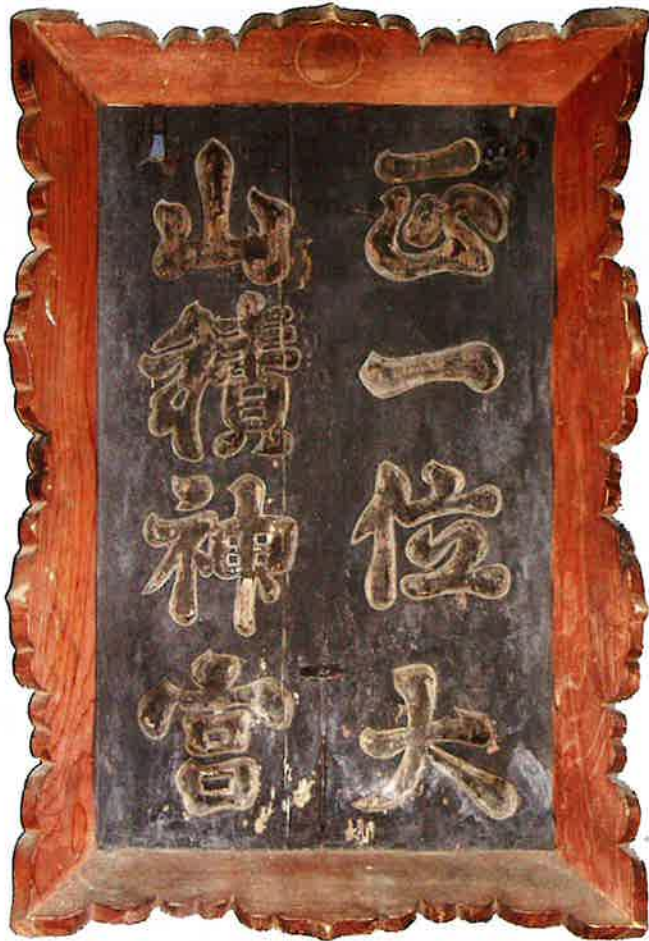 正一位大
山積神宮